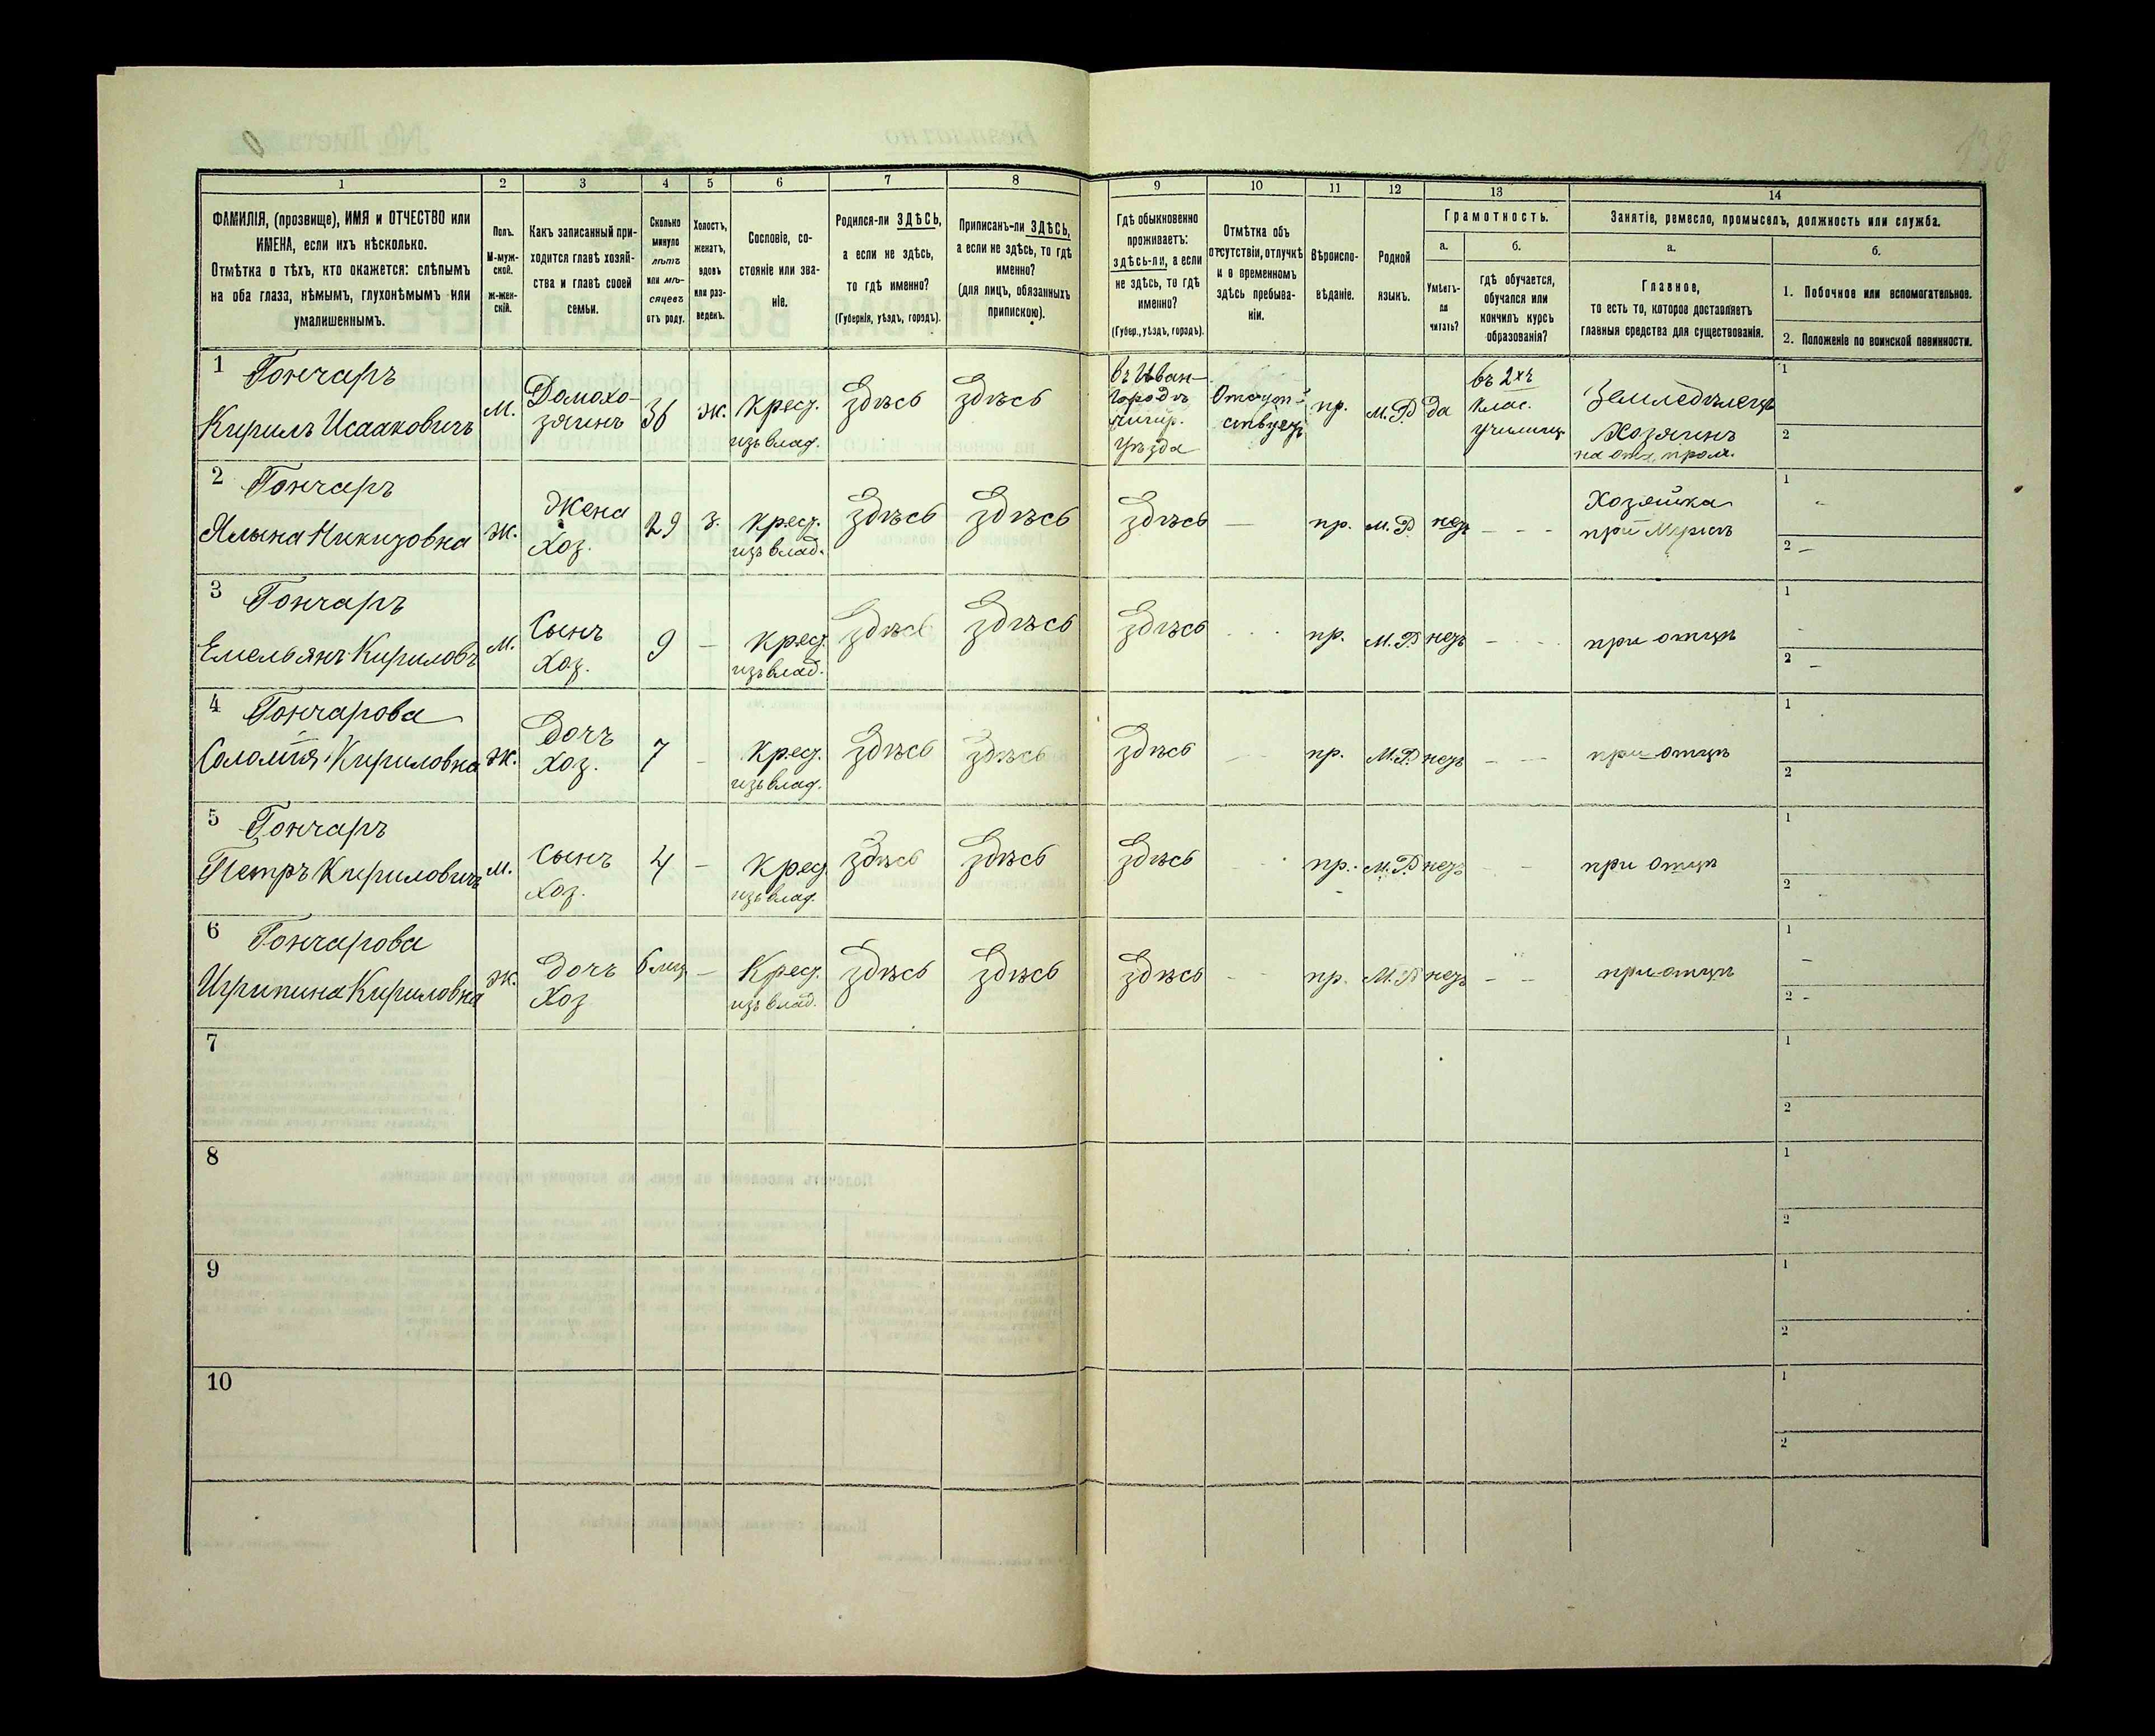 1 2 3 4 5 6 7 8 9 10 11 12 13 14
ФАМИЛІЯ, (прозвище), ИМЯ и ОТЧЕСТВО или
ИМЕНА, если ихъ нѣсколько.
Отмѣтка о тѣхъ, кто окажется: слѣпымъ
на оба глаза, нѣмымъ, глухонѣмымъ или
умалишеннымъ.
Полъ.
М-муж-
ской.
Ж-жен-
скій.
Какъ записанный при-
ходится главѣ хозяй-
ства и главѣ своей
семьи.
Сколько
минуло
лѣтъ
или мѣ-
сяцевъ
отъ роду.
Холостъ,
женатъ,
вдовъ
или раз-
веденъ.
Сословіе, со-
стояніе или зва-
ніе.
Родился-ли ЗДѢСЬ,
а если не здѣсь,
то гдѣ именно?
(Губернія, уѣздъ, городъ).
Приписанъ-ли ЗДѢСЬ,
а если не здѣсь, то гдѣ
именно?
(для лицъ, обязанныхъ
припискою).
Гдѣ обыкновенно
проживаетъ:
здѣсь-ли, а если
не здѣсь, то гдѣ
именно?
(Губер., уѣздъ, городъ).
Отмѣтка объ
отсутствіи, отлучкѣ
и о временномъ
здѣсь пребыва-
ніи.
Вѣроиспо-
вѣданіе.
Родной
языкъ.
Грамотность.
а.
Умѣетъ-
ли
читать?
б.
гдѣ обучается,
обучался или
кончилъ курсъ
образованія?
Занятіе, ремесло, промыселъ, должность или служба.
а.
Главное,
то есть то, которое доставляетъ
главныя средства для существованія.
б.
1. Побочное или вспомогательное.
2. Положеніе по воинской повинности.
1 Гончаръ
Кирилъ Исааковичъ
м.
Домохо-
зяинъ
36
ж.
Крес.
изъ влад.
Здѣсь
Здѣсь
въ Иван-
городѣ
чигир.
уѣзда
Отсут-
ствуетъ
пр.
М.Р
да
въ 2хъ
клас.
училищ
Земледѣлецъ
Хозяинъ
1
2
2 Гончаръ
Никитовна
ж.
Жена
хоз.
29
з.
Крес.
изъ влад.
Здѣсь
Здѣсь
Здѣсь
—
пр.
М.Р
нетъ
- - -
Хозяйка
при Мужѣ
1 -
2 -
3 Гончаръ
Емельянъ Кириловъ
м.
Сынъ
хоз.
9
—
крес.
изъ влад.
Здѣсь
Здѣсь
Здѣсь
пр.
М.Р
нетъ
при отцѣ
1 -
2 -
4 Гончарова
Соломія Кириловна
ж.
Дочъ
хоз.
7
-
Крес.
изъ влад.
Здѣсь
Здѣсь
Здѣсь
пр.
М.Р
нетъ
при отцѣ
1
2
5 Гончаръ
Петръ Кириловичъ
м.
Сынъ
хоз.
4
-
Крес
изъ влад.
Здѣсь
Здѣсь
Здѣсь
пр.
М.Р
нетъ
при отцѣ
1
2 -
6 Гончарова
Кириловна
ж.
Дочъ
Хоз
6 мец
—
Крес.
изъ влад.
Здѣсь
Здѣсь
Здѣсь
пр.
М.Р
нетъ
при отцѣ
1 -
2 -
7
1
2
8
1
2
9
1
2
10
1
2